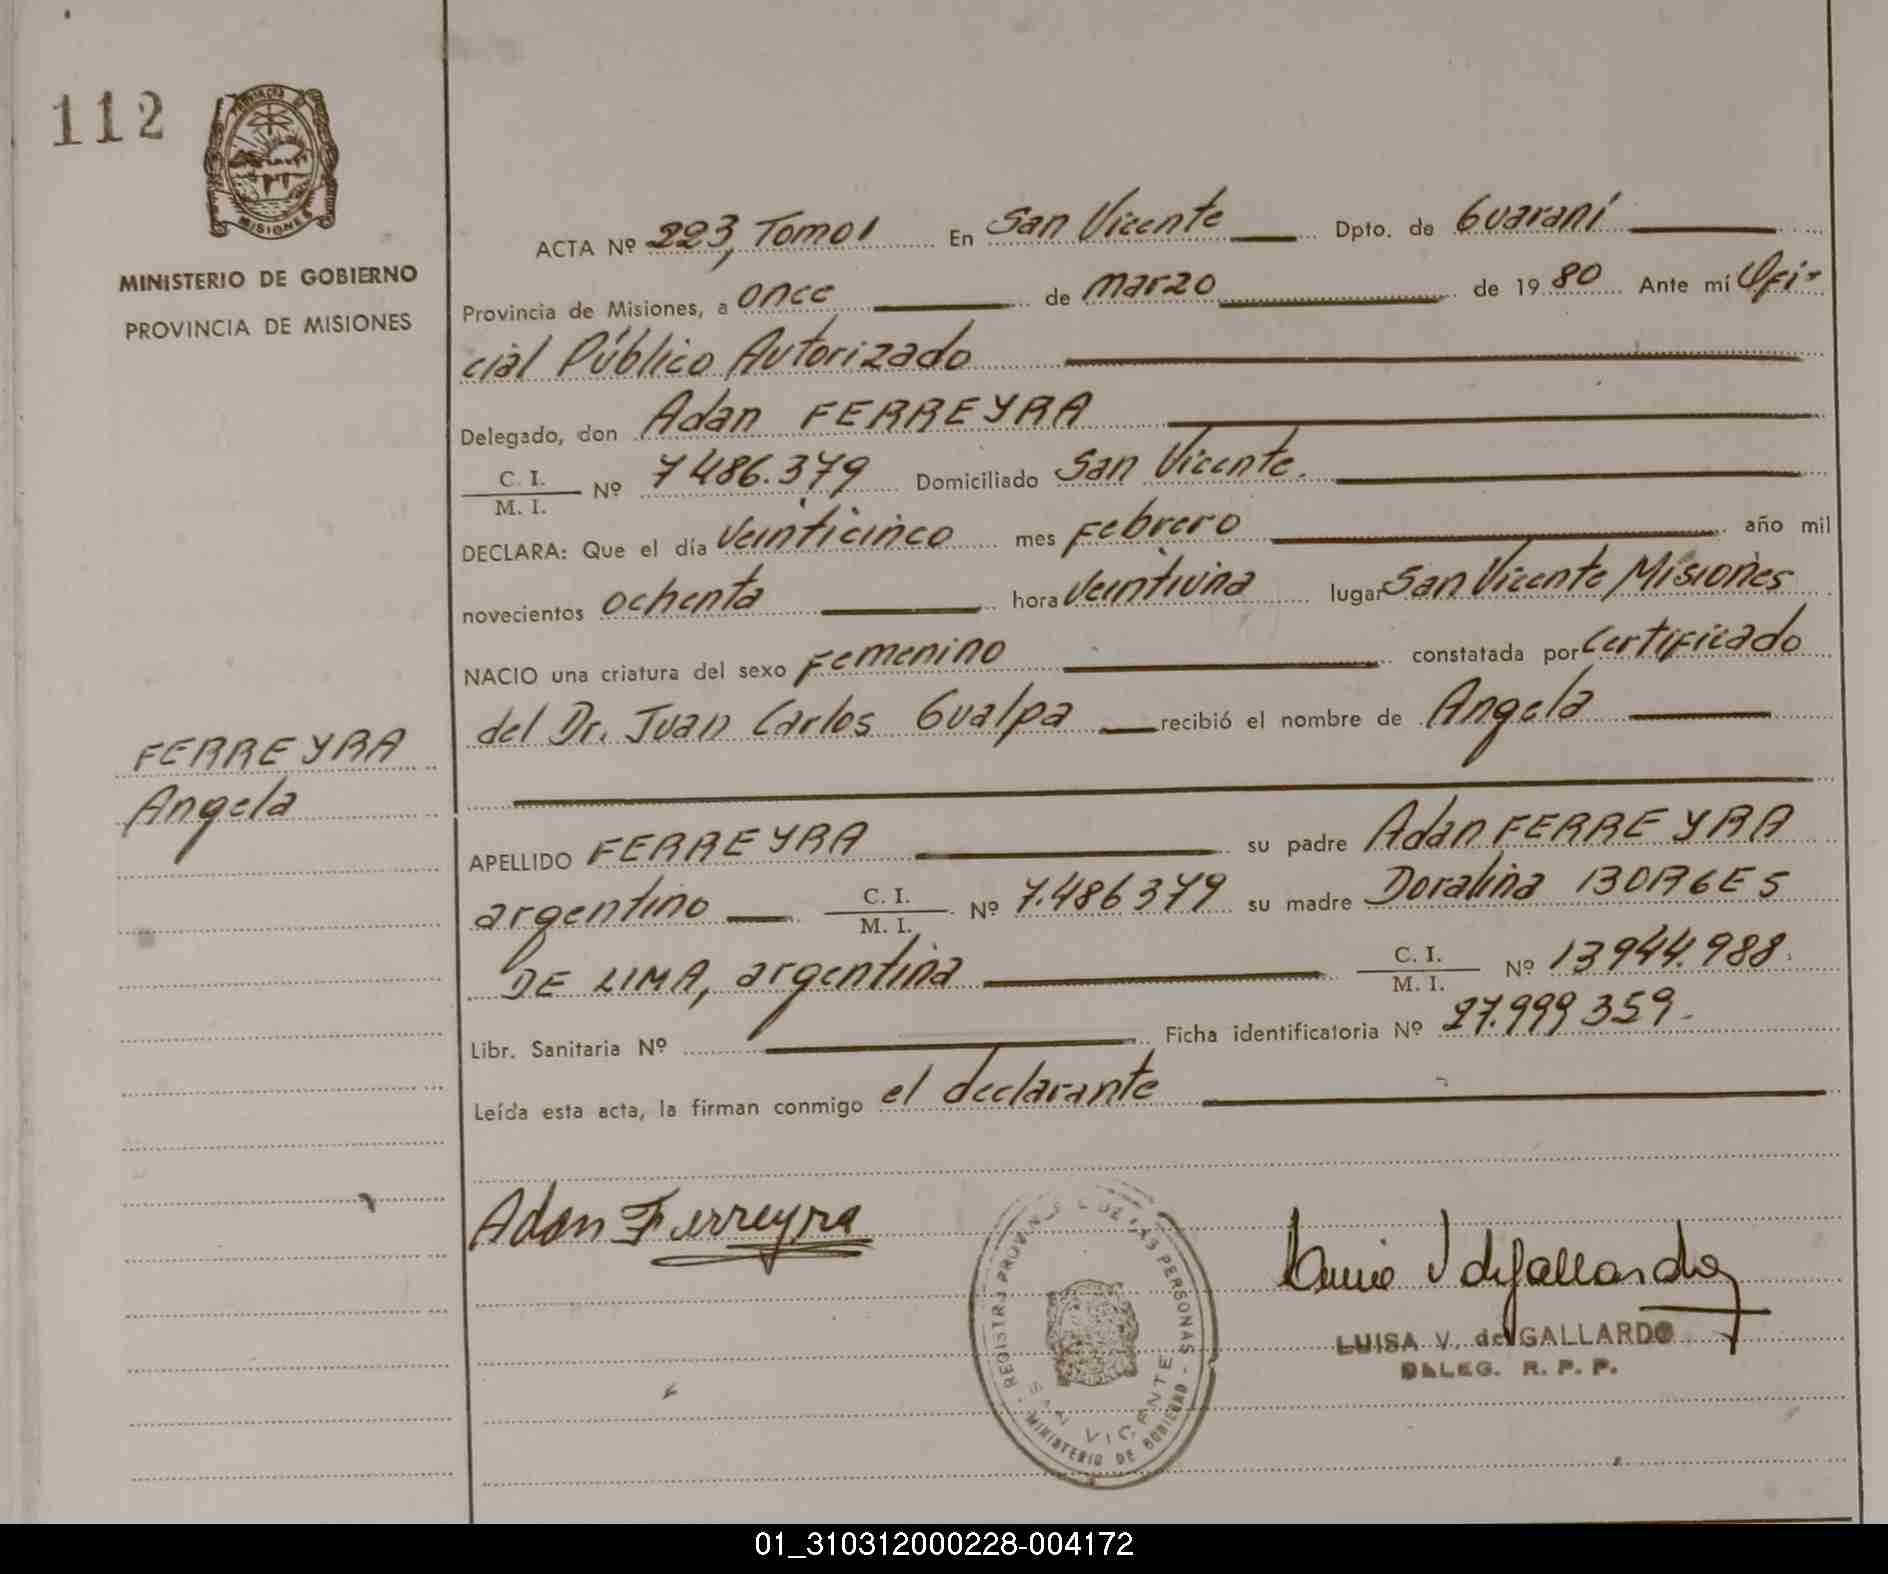 112
PROVINCIA DE
MISIONES
MINISTERIO DE GOBIERNO
PROVINCIA DE MISIONES
ACTA Nº 223, Tomo I En San Vicente Dpto. de Guaraní
Provincia de Misiones, a once de marzo de 1980 Ante mí Ofi-
cial Público Autorizado
Delegado, don Adan FERREYRA
C. I.
M. I. Nº 7486.379 Domiciliado San Vicente.
DECLARA: Que el día veinticinco mes Febrero año mil
novecientos ochenta hora veintiuna lugar San Vicente Misiones
NACIO una criatura del sexo Femenino constatada por certificado
del Dr. Juan Carlos Gualpa recibió el nombre de Angela
FERREYRA
Angela
APELLIDO FERREYRA su padre Adan FERREYRA
argentino C. I.
M. I. Nº 7.486379 su madre Doralina BORGES
DE LIMA, argentina C. I.
M. I. Nº 13944.988.
Libr. Sanitaria Nº Ficha identificatoria Nº 27.999359.
Leída esta acta, la firman conmigo el declarante
Adan Ferreyra
REGISTRO PROVINCIAL DE LAS PERSONAS - MINISTERIO DE GOBIERNO -
SAN VICENTE
LUISA V. de GALLARDO
DELEG. R. P. P.
01_310312000228-004172